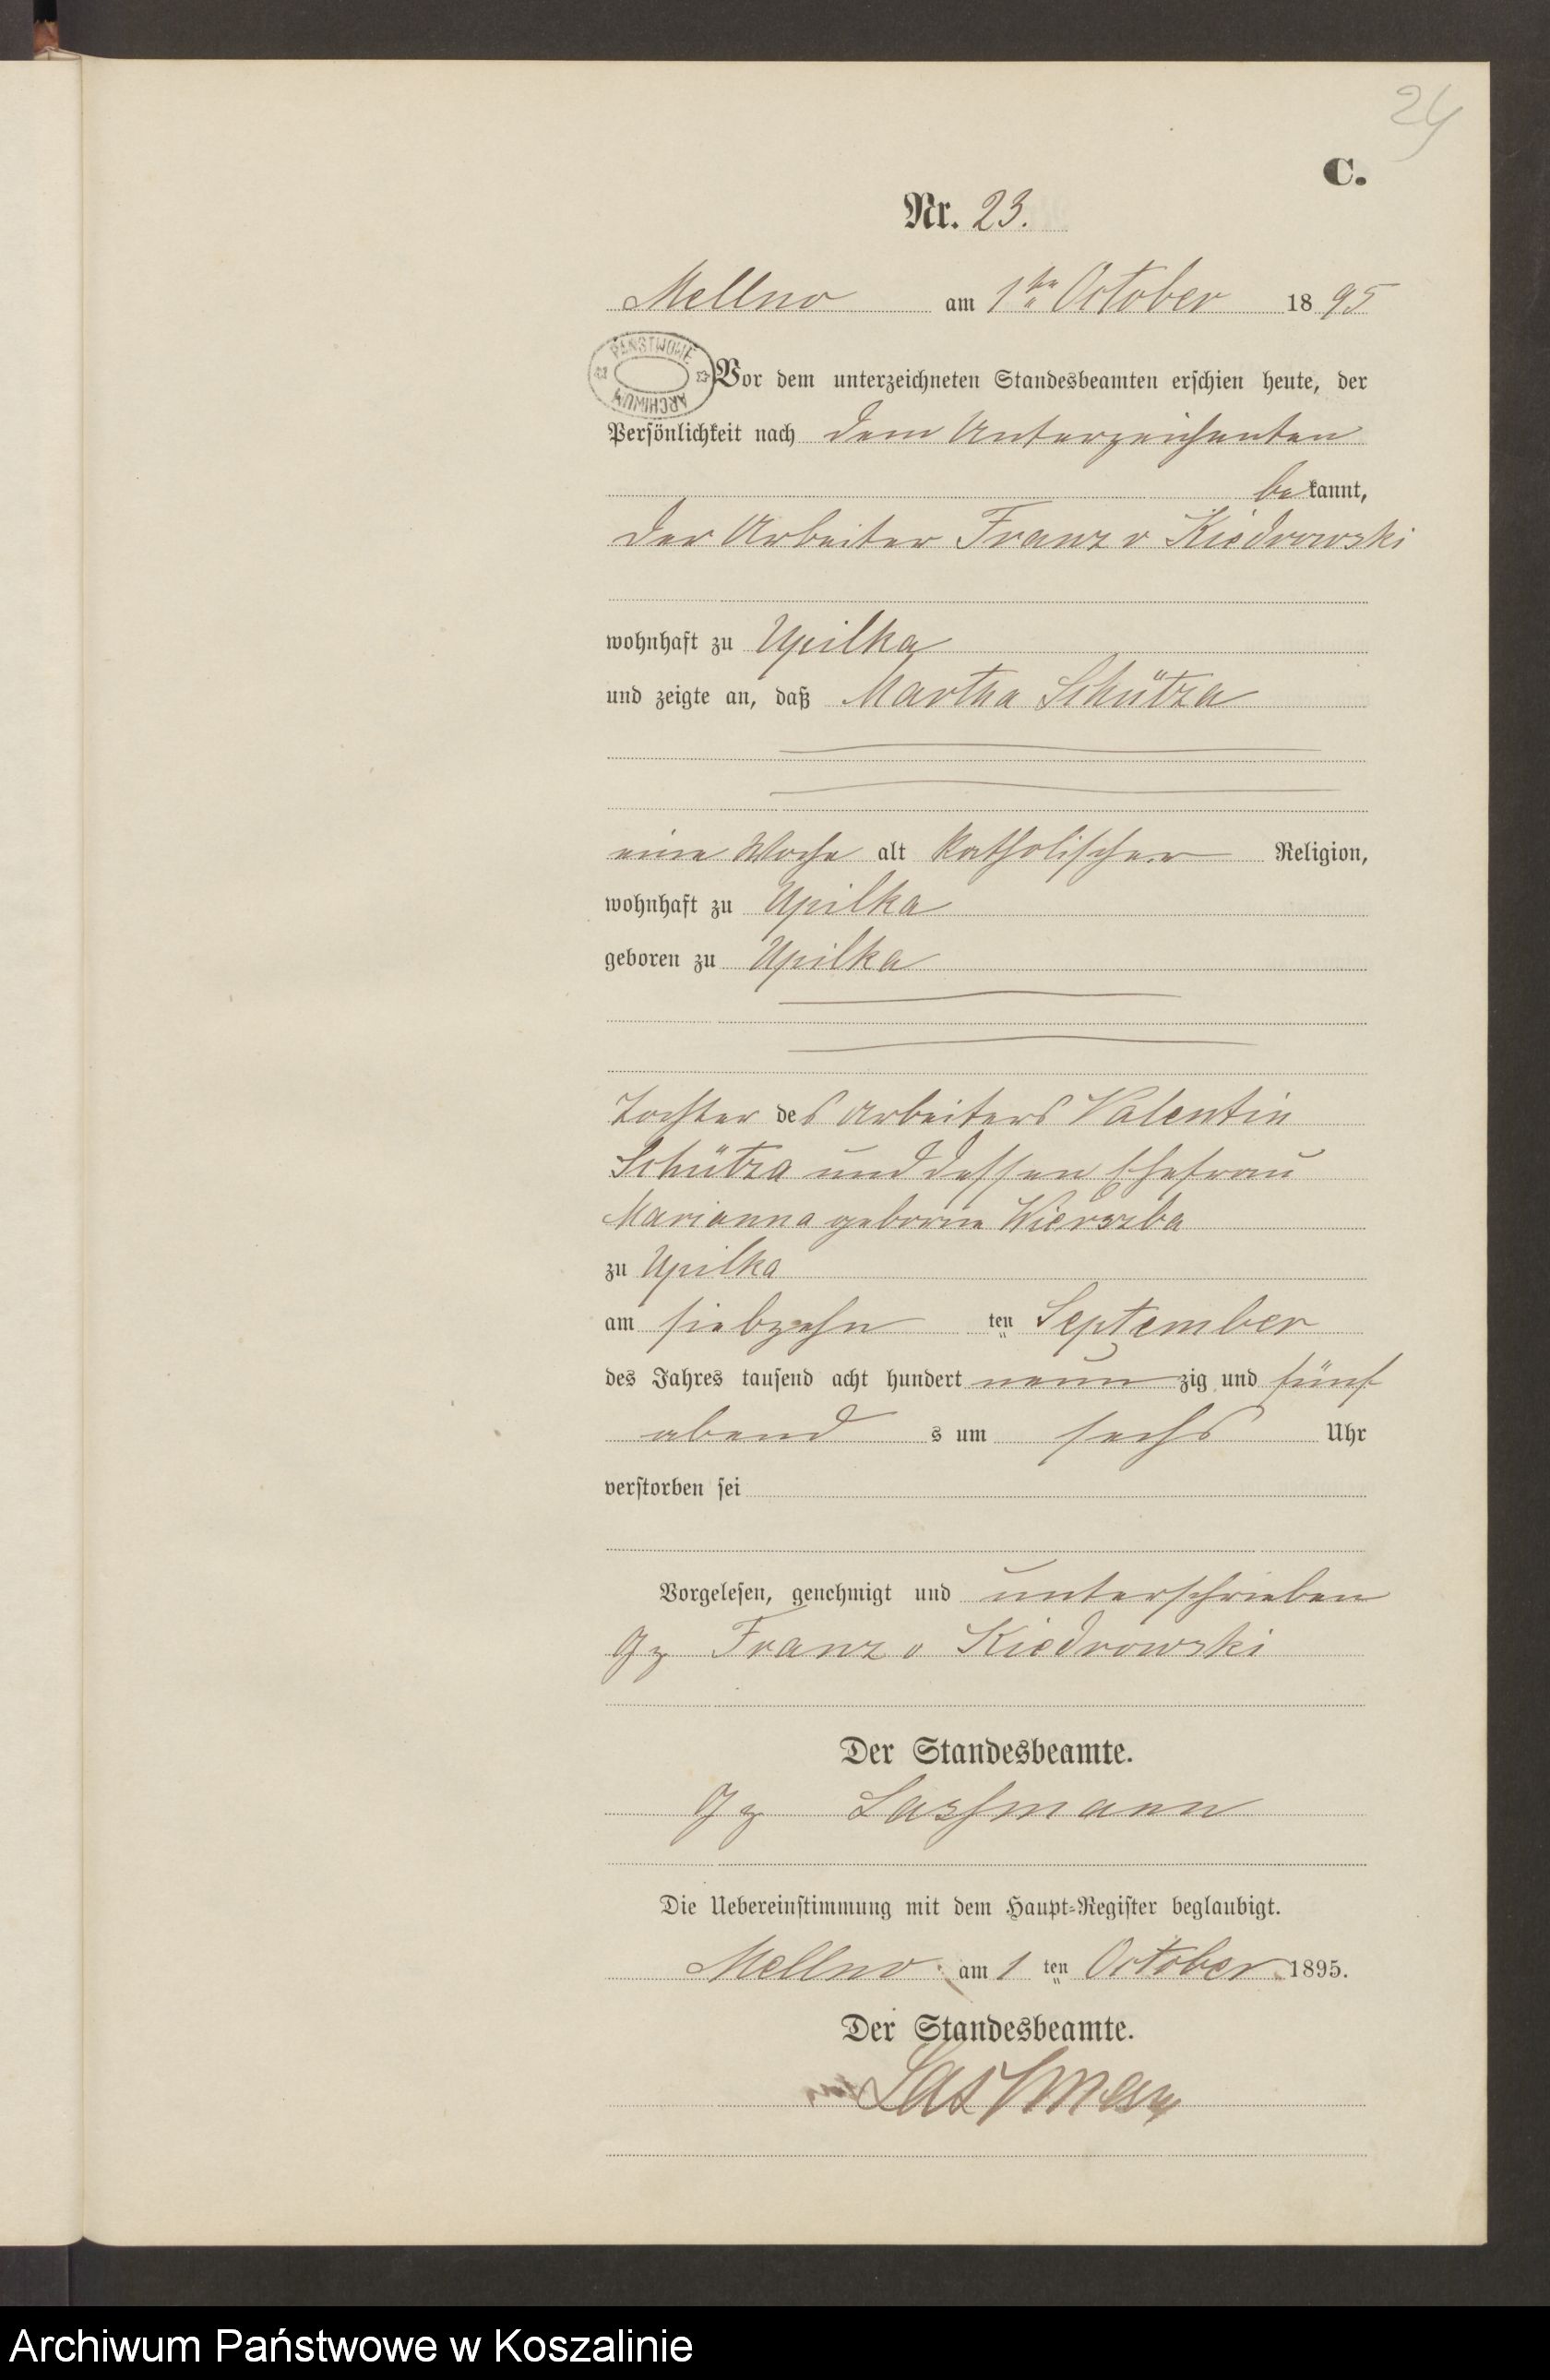 24
C.
Nr. 23.
Mellno am 1ten October 1895
PAŃSTWOWE ARCHIWUM
Vor dem unterzeichneten Standesbeamten erschien heute, der
Persönlichkeit nach dem Unterzeichneten
bekannt,
der Arbeiter Franz v Kiedrowski
wohnhaft zu Upilka
und zeigte an, daß Martha Schütza
eine Woche alt katholischer Religion,
wohnhaft zu Upilka
geboren zu Upilka
Tochter des Arbeiters Valentin
Schütza und dessen Ehefrau
Marianna geborne Wierszba
zu Upilka
am siebzehn ten September
des Jahres tausend acht hundert neunzig und fünf
abends um sechs Uhr
verstorben sei
Vorgelesen, genehmigt und unterschrieben
gz Franz v Kiedrowski
Der Standesbeamte.
gz Lassmann
Die Uebereinstimmung mit dem Haupt-Register beglaubigt.
Mellno am 1 ten October 1895.
Der Standesbeamte.
Lassmann
Archiwum Państwowe w Koszalinie